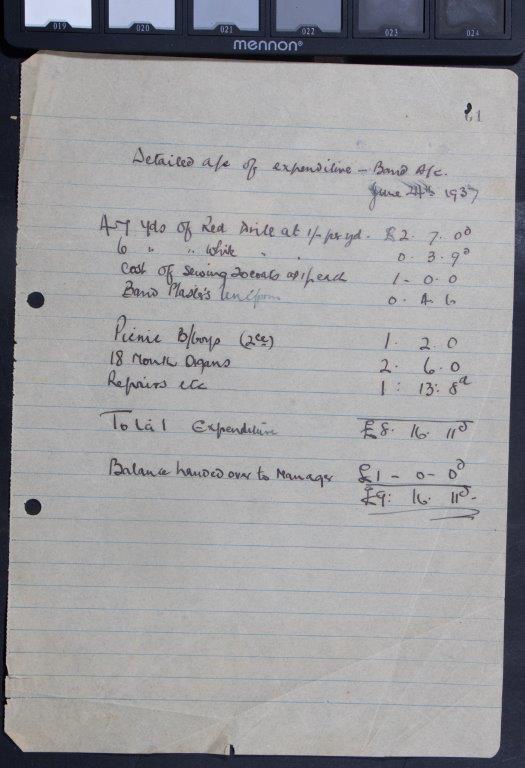 019 020 021 022 023 024
mennon®
61
Detailed a/c of expenditure – Band A/c.
June 24th 1937
47 yds of Red Drill at 1/- per yd. £2. 7. 0d
6 " " White " . 0. 3. 9d
Cost of sewing 20 coats at 1/- each 1 - 0. 0
Band Master's Uniform 0. 4. 6
Picnic B/boys (2ce) 1. 2. 0
18 Mouth Organs 2. 6. 0
Repairs etc 1: 13: 8d
Total Expenditure £8. 16. 11d
Balance handed over to Manager £1 - 0 - 0d
£9: 16. 11d-